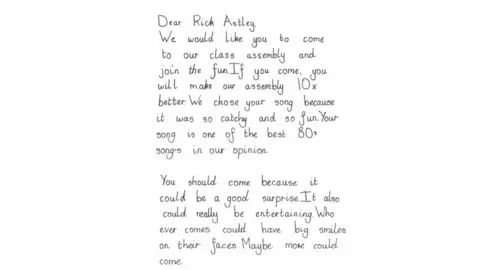 Dear Rick Astley,
We would like you to come
to our class assembly and
join the fun. If you come, you
will make our assembly 10x
better. We chose your song because
it was so catchy and so fun. Your
song is one of the best 80s
songs in our opinion.
You should come because it
could be a good surprise. It also
could really be entertaining. Who
ever comes could have big smiles
on their faces. Maybe more could
come.